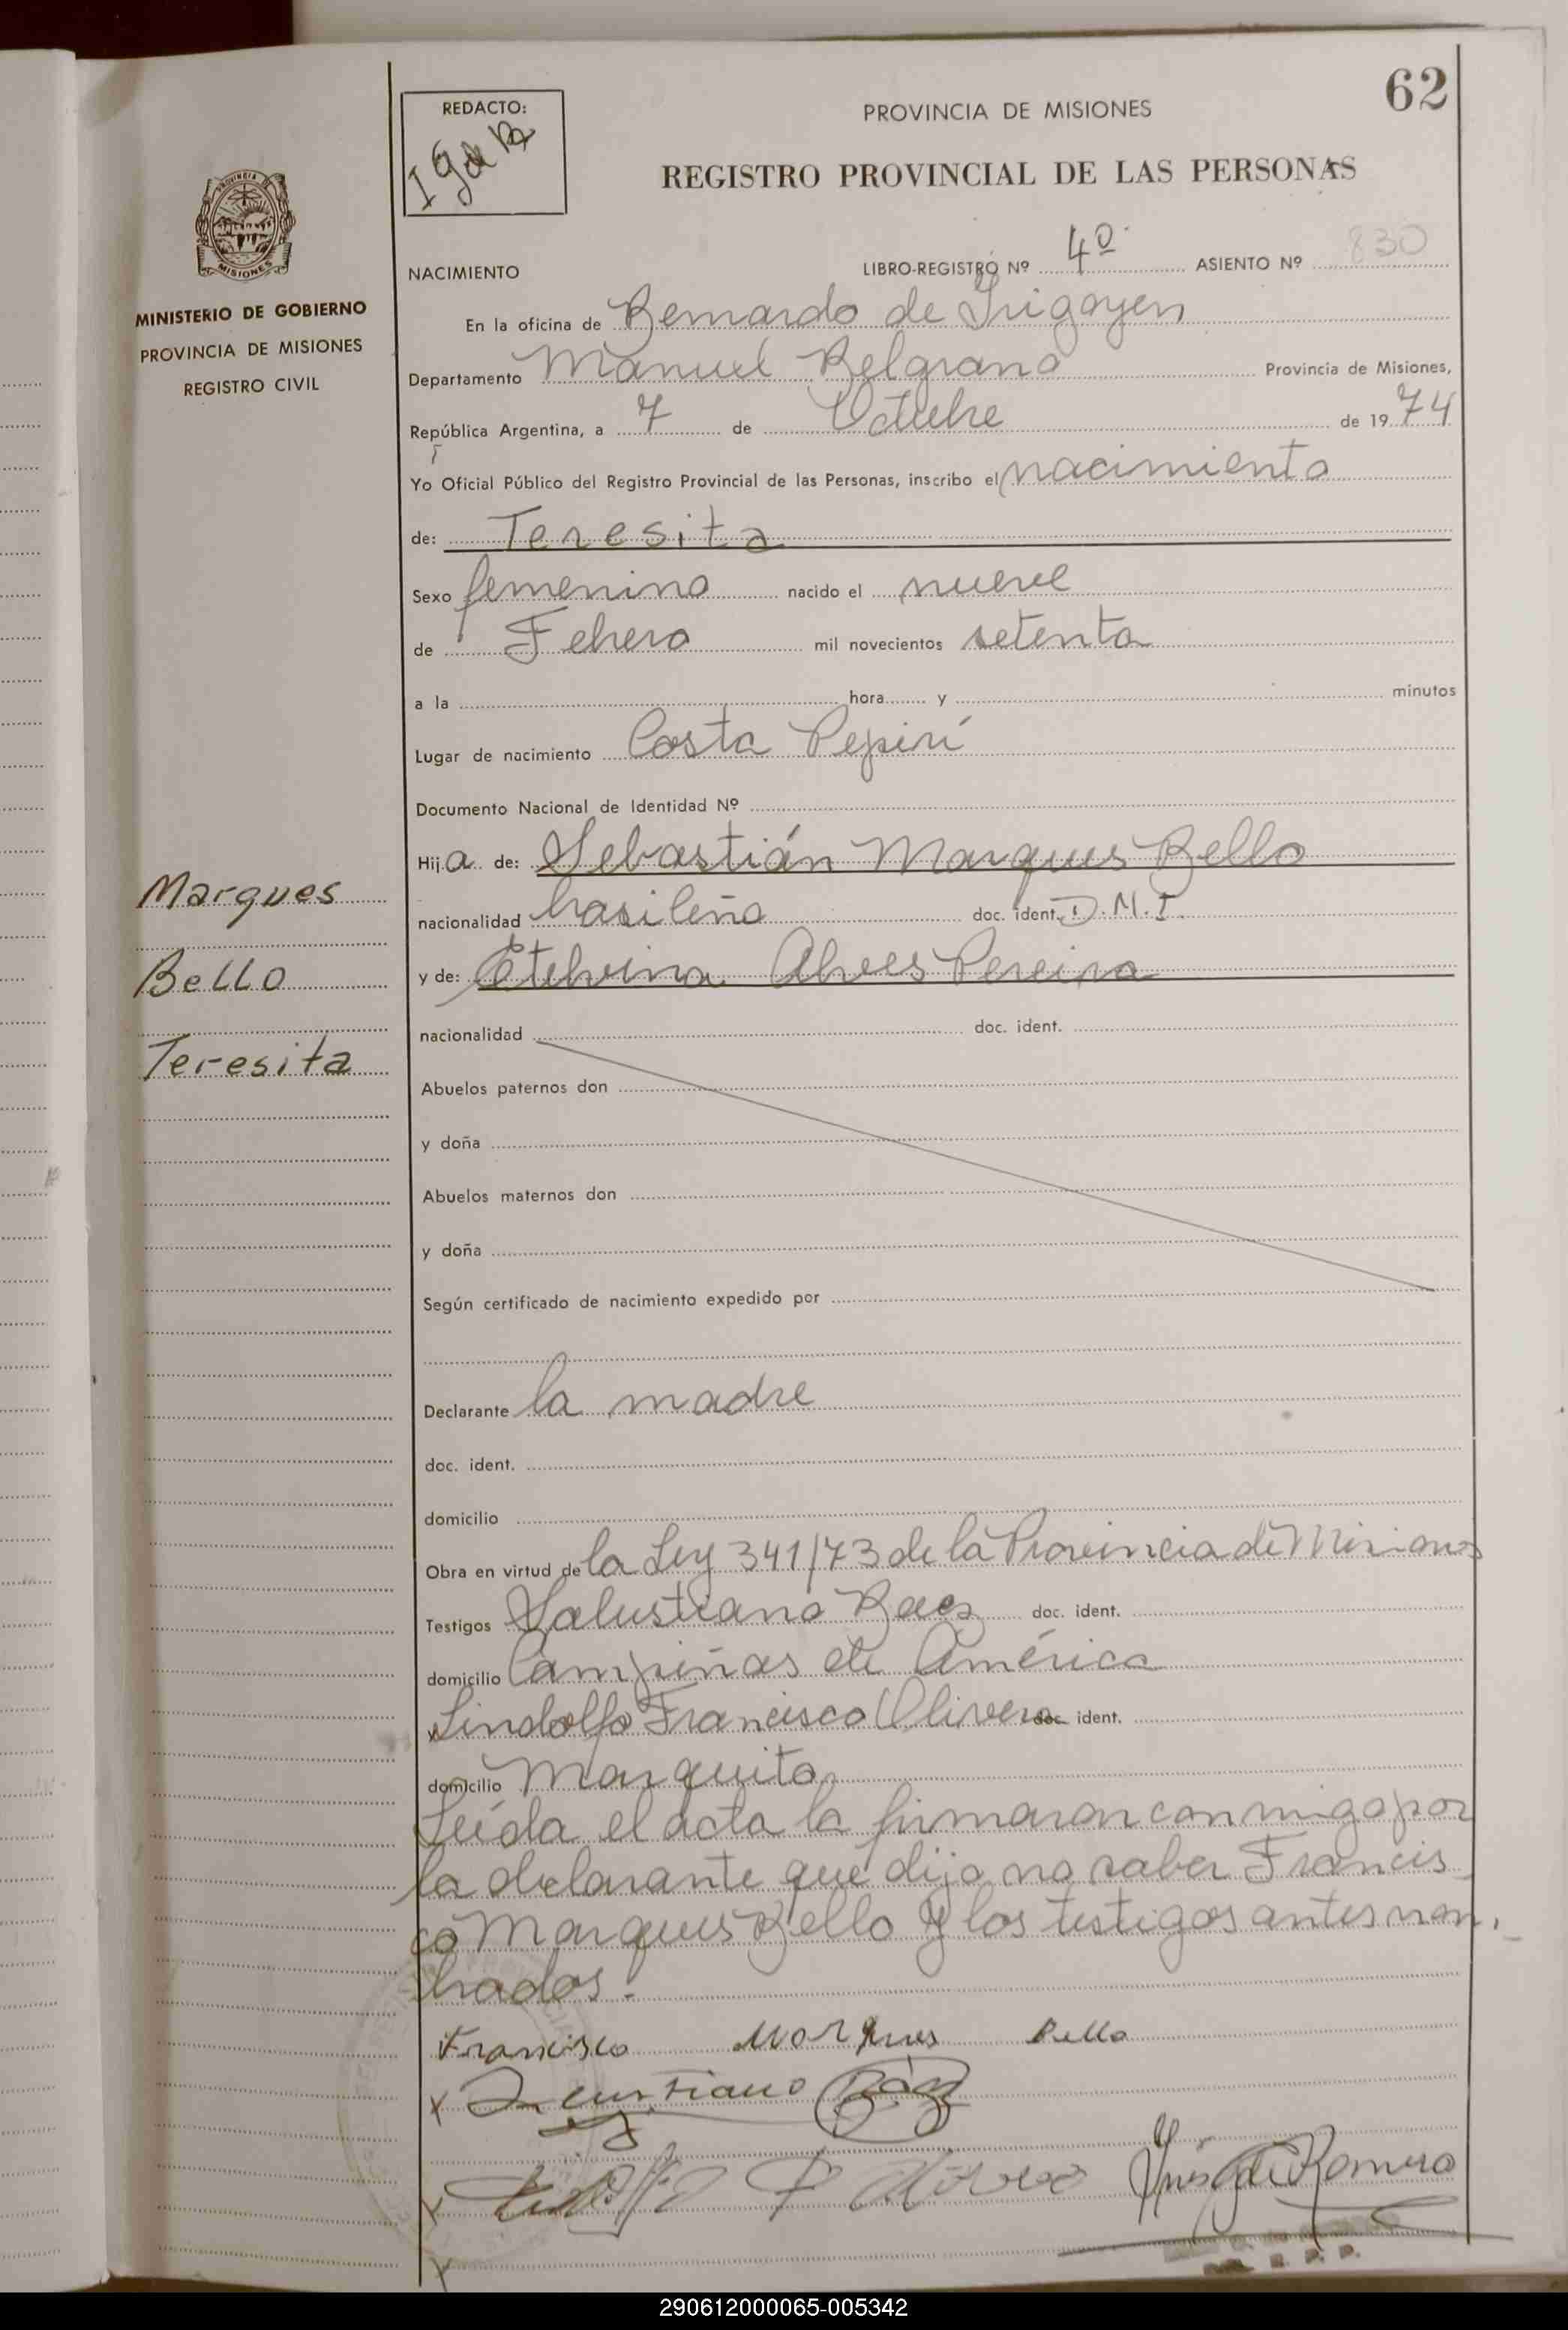 62
REDACTO:
I G de R
PROVINCIA DE MISIONES
REGISTRO PROVINCIAL DE LAS PERSONAS
PROVINCIA
MISIONES
MINISTERIO DE GOBIERNO
PROVINCIA DE MISIONES
REGISTRO CIVIL
NACIMIENTO
LIBRO-REGISTRO Nº 4º ASIENTO Nº 830
En la oficina de Bernardo de Irigoyen
Departamento Manuel Belgrano Provincia de Misiones,
República Argentina, a 7 de Octubre de 1974
Yo Oficial Público del Registro Provincial de las Personas, inscribo el nacimiento
de: Teresita
Sexo femenino nacido el nueve
de Febrero mil novecientos setenta
a la hora y minutos
Lugar de nacimiento Costa Pepirí
Documento Nacional de Identidad Nº
Hija de: Sebastián Marques Bello
Marques
nacionalidad brasileña doc. ident. D.M.I.
Bello
y de: Etelvina Alves Pereira
nacionalidad doc. ident.
Teresita
Abuelos paternos don
y doña
Abuelos maternos don
y doña
Según certificado de nacimiento expedido por
Declarante la madre
doc. ident.
domicilio
Obra en virtud de la Ley 341/73 de la Provincia de Misiones
Testigos Salustiano Baez doc. ident.
domicilio Campiñas de América
y Lindolfo Francisco Olivera doc. ident.
domicilio Marquito
Leída el acta la firmaron conmigo por
la declarante que dijo no saber Francis
co Marques Bello y los testigos antes nom
brados.
Francisco Marques Bello
x Baez
x
Inés G de Romero
290612000065-005342